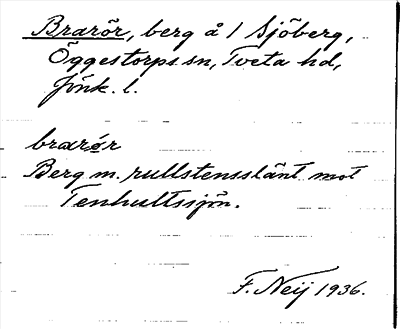 Brarör, berg å 1 Sjöberg,
Öggestorps sn, Tveta hd,
Jönk. l.
brarør
Berg m. rullstensslänt mot
Tenhultssjön.
F. Neij 1936.